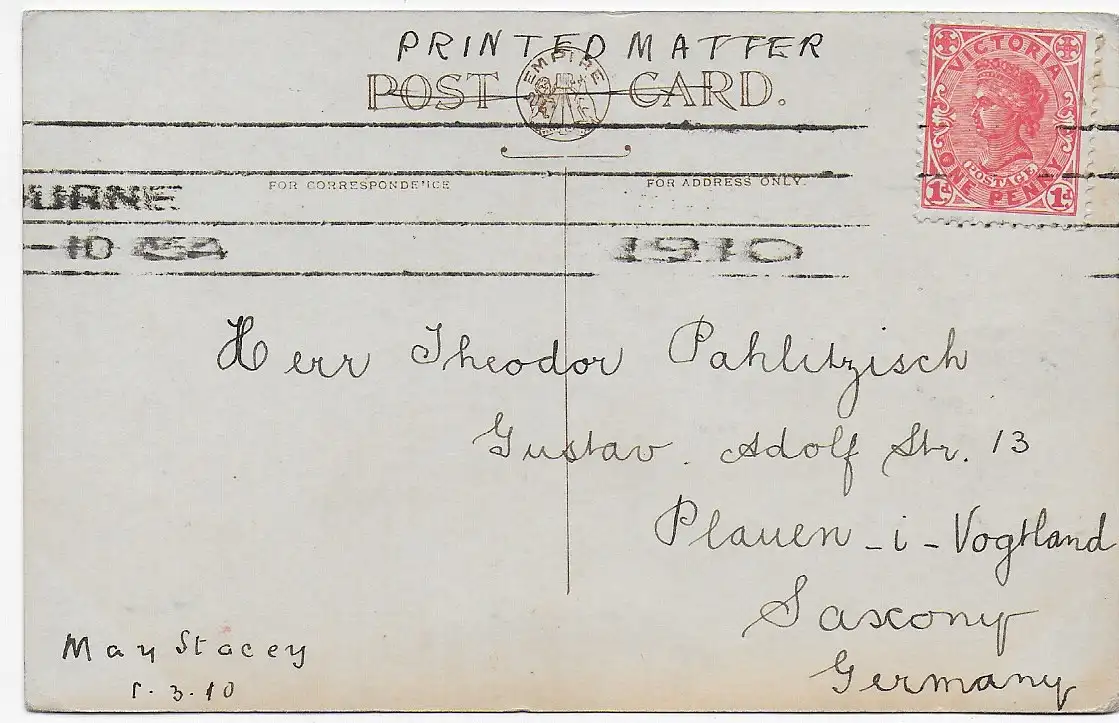 PRINTED MATTER
POST CARD.
EMPIRE
FOR CORRESPONDENCE
FOR ADDRESS ONLY.
VICTORIA
POSTAGE
ONE PENNY
1d 1d
URNE
-10
1910
Herr Theodor Pahlitzisch
Gustav. Adolf Str. 13
Plauen - i - Vogtland
Saxony
Germany
May Stacey
1. 3. 10